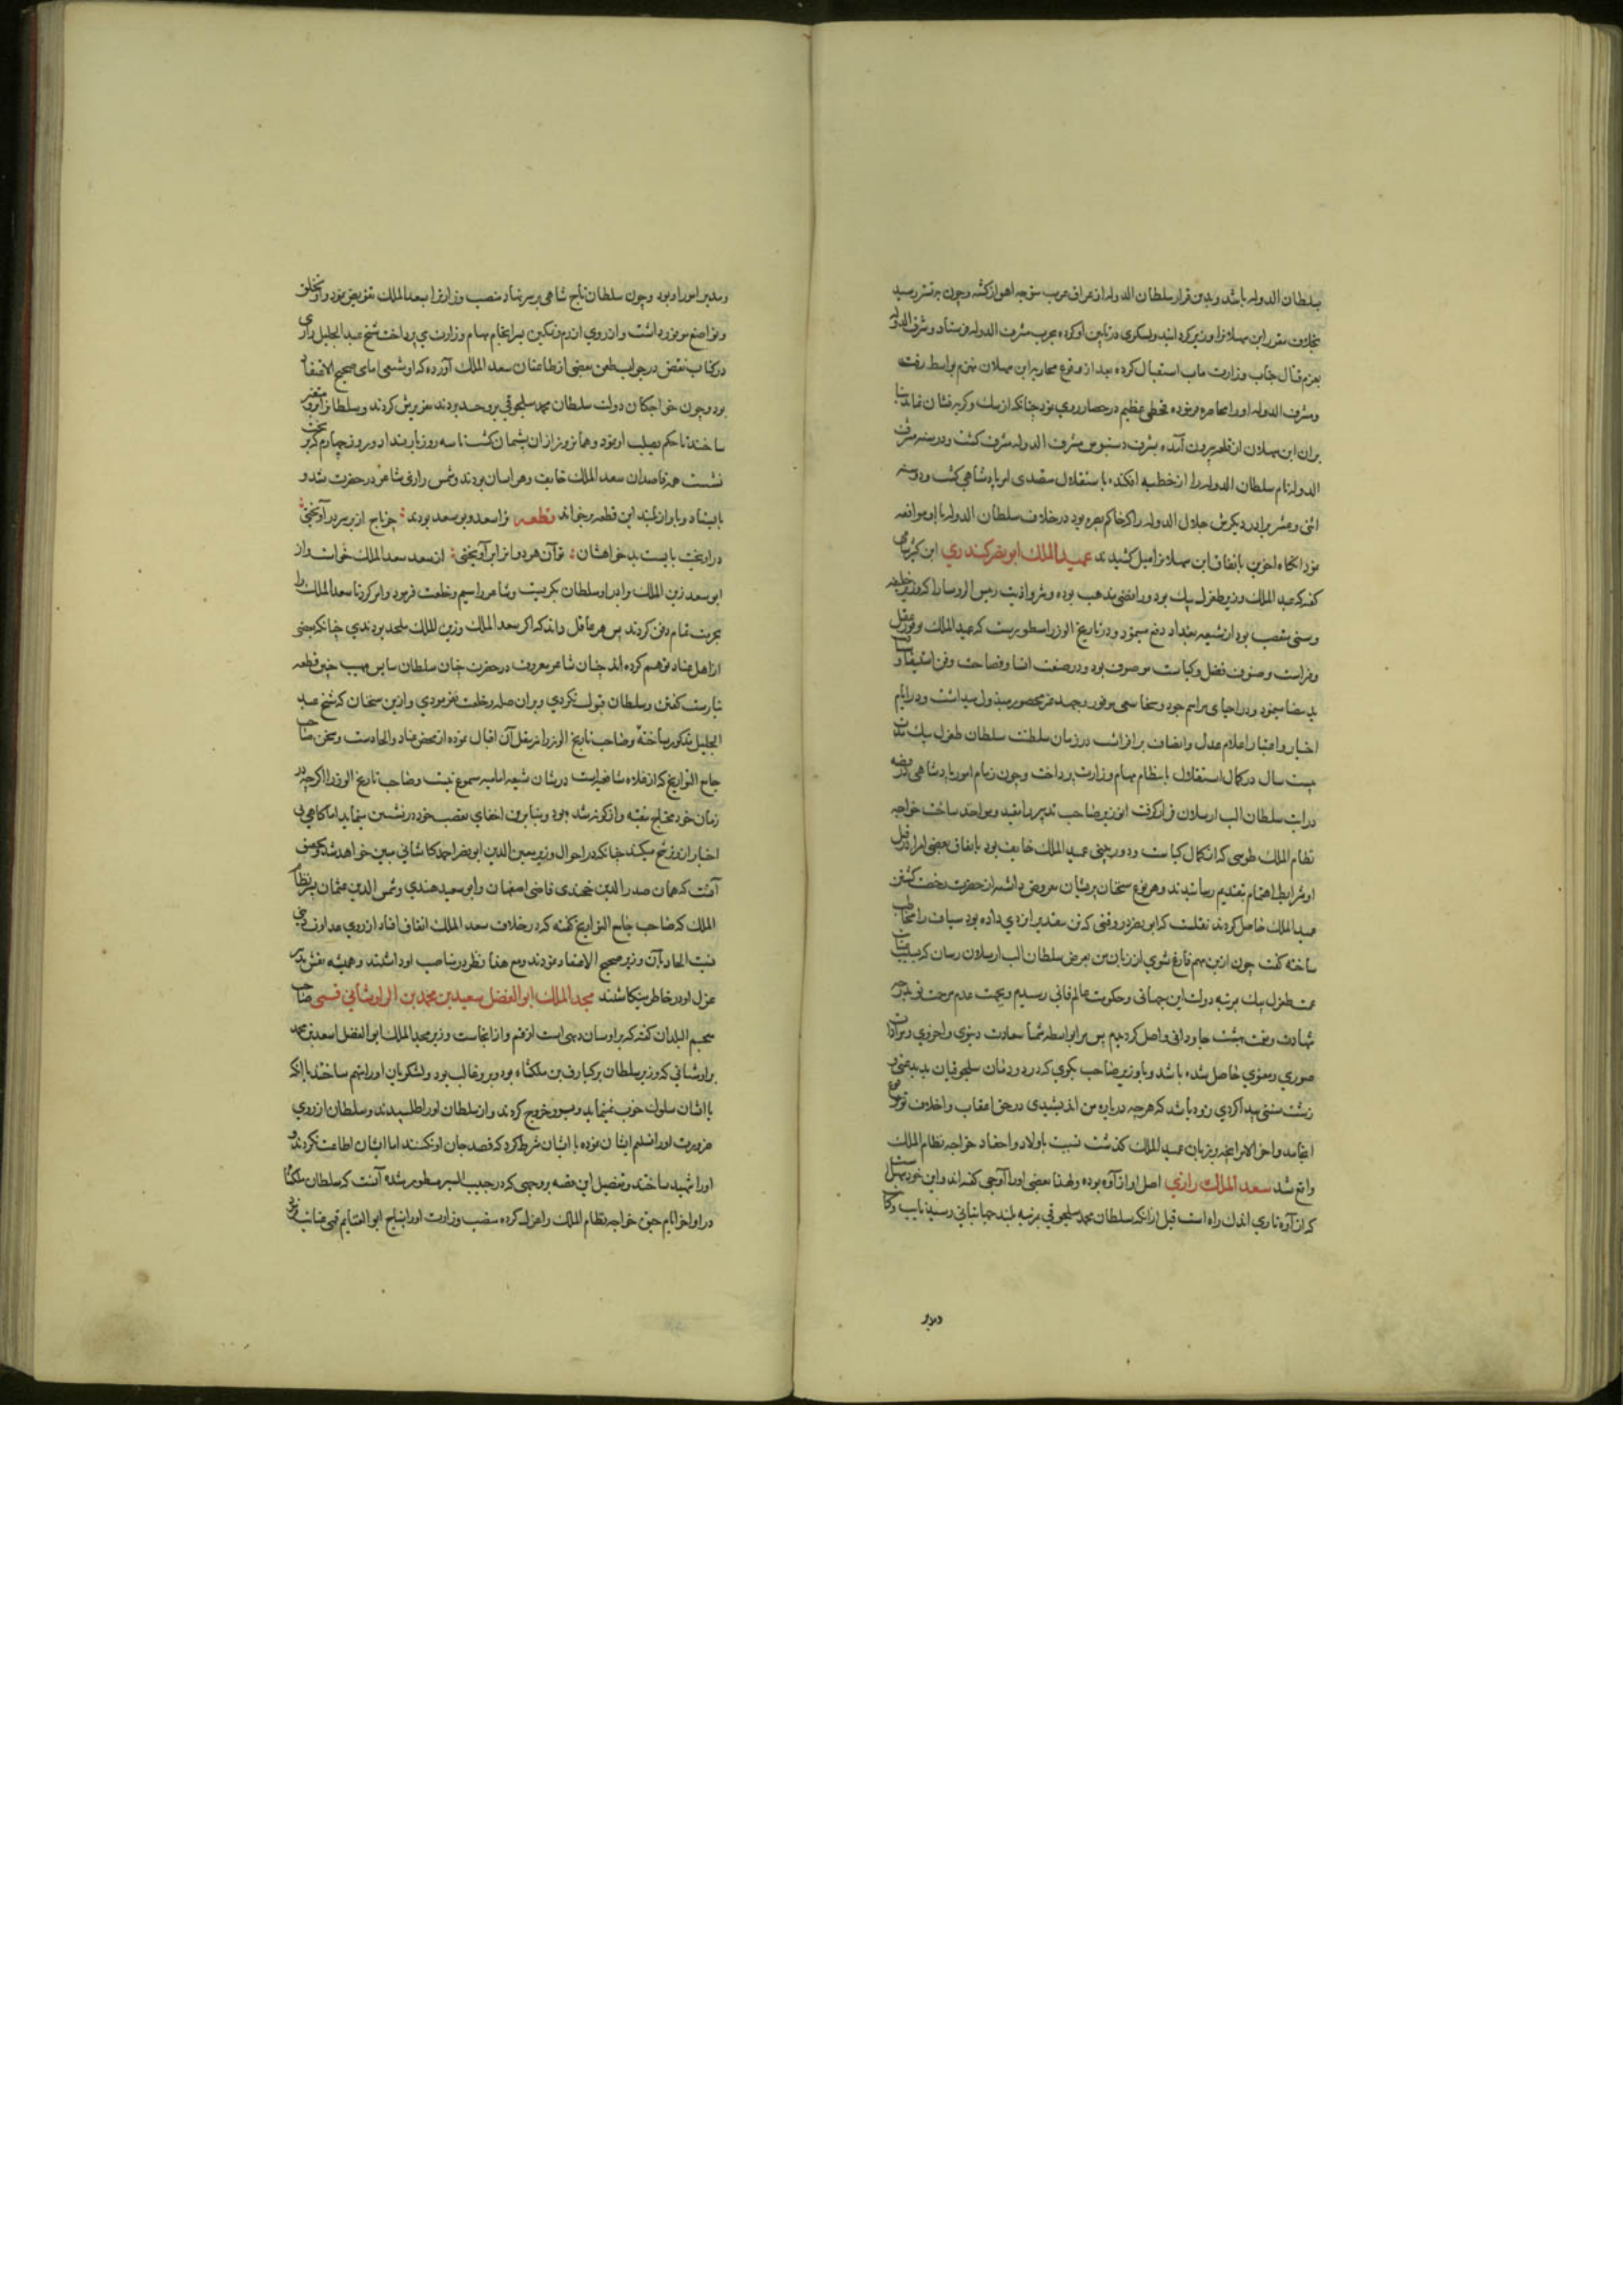 سلطان الدوله باشد وبدین قرار سلطان الدوله از عراق عرب متوجه اهواز کشته وچون به تستر رسید
بخلاف مقرر ابن سهلانرا وزیر کردانید ولشکری در تابین او کرده بحرب مشرف الدوله فرستاد ومشرف الدوله
بعزم قتال جناب وزارت ماب استقبال کرده بعد از وقوع محاربه ابن سهلان منهزم بواسط رفت
ومشرف الدوله اورا محاصره نموده قحطی عظیم در حصار روی نمود چنانکه از سک وکربه نشان نماند بنا
بران ابن سهلان از قلعه بیرون آمده بشرف دستبوس مشرف الدوله مشرف کشت ودر سنه
الدوله نام سلطان الدوله را از خطبه افکنده باستقلال متصدی امر پادشاهی کشت ودر سنه
اثنی وعشر برادر دیکرش جلال الدوله را که حاکم بصره بود در خلاف سلطان الدوله با او موافقه
نمود انکاه اخوین باتفاق ابن سهلانرا میل کشیدند عمید الملک ابو نصر کندری ابن کثیر شامی
کفته که عمید الملک وزیر طغرل بیک بود ورافضی مذهب بوده وبشر واذیت رئیس الروسا را که وزیر خلیفه
وسنی متعصب بود از شیعه بغداد دفع مینمود ودر تاریخ الوزرا مسطورست که عمید الملک بوفور عقل
وفراست وصنوف فضل وکیاست موصوف بود ودر صنعت انشا وفصاحت وفن استیفا و
ید بیضا مینمود ودر احیای مراسم جود وسخا سعی موفور وجهد غیر محصور مبذول میداشت ودر ایام
اختیار واعتبار اعلام عدل وانصاف برافراشت در زمان سلطنت سلطان طغرل بیک مدت
بیست سال در کمال استقلال بانتظام مهام وزارت پرداخت وچون زمام امور پادشاهی در قبضه
درایت سلطان الب ارسلان قرار کرفت ان وزیر صاحب تدبیر را مقید ومواخذ ساخت خواجه
نظام الملک طوسی که از کمال کیاست ودوربینی عمید الملک خایف بود باتفاق بعضی امرا در قتل
او شرایط اهتمام بتقدیم رسانیدند وهر نوع سخنان پریشان معروض داشته از حضرت رخصت کشتن
عمید الملک حاصل کردند نقلست که ابو نصر در وقتی که تن بتقدیر ایزدی داده بود سیاف را مخاطب
ساخته کفت چون ازین مهم فارغ شوی از زبان من بعرض سلطان الب ارسلان رسان که بسبب عنایت
عمت طغرل بیک بمرتبه دولت این جهانی وحکومت عالم فانی رسیدم وبیمن مرحمت تو بدرجه
شهادت ونعمت بهشت جاودانی واصل کردیدم پس مرا بواسطه شما سعادت دنیوی واخروی ومرادات
صوری ومعنوی حاصل شده باشد وبا وزیر صاحب بکوی که در دودمان سلجوقیان بد بدعتی و
زشت سنتی پیدا کردی زود باشد که هرچه درباره من اندیشیدی در حق اعقاب واخلاف تو وقوع
انجامد واخر الامر انچه بر زبان عمید الملک کذشت نسبت باولاد واحفاد خواجه نظام الملک
واقع شد سعد الملک رازی اصل او از آوه بوده ولهذا بعضی اورا آوجی کفته اند واین خود سهل است
که از آوه تا ری اندک راه است قبل از انکه سلطان محمد سلجوقی بمرتبه بلند جهانبانی رسید نایب وکا
ومدبر
ومدبر امور او بود وچون سلطان تاج شاهی بر سر نهاد منصب وزارترا بسعد الملک تفویض نمود واو بتخلق
وتواضع موفور داشت واز روی ازرم وتمکین بسرانجام مهام وزارت می پرداخت شیخ عبد الجلیل رازی
در کتاب نقض در جواب طعن بعضی از طاعنان سعد الملک آورده که او شیعی امامی صحیح الاعتقاد
بود وچون خواجکان دولت سلطان محمد سلجوقی بر وحسد بردند تزویرش کردند وسلطانرا برو متغیر
ساختند تا حکم بصلب او نمود وهمانروز از ان پشیمان کشت تا سه روز بار نداد وروز چهارم که بر تخت
نشست همه قاصدان سعد الملک خایف وهراسان بودند وشمس رازی شاعر در حضرت شد و
بایستاد وباواز بلند این قطعه برخواند قطعه ترا سعد وبو سعد بودند ؛ چو تاج از بر سر در آویختی ؛
در اویخت بایست بدخواهشان ؛ تو آن هر دوانرا بر آویختی ؛ از سعد سعد الملک خواست واز
ابو سعد زین الملک را براو سلطان بکریست وشاعر را سیم وخلعت فرمود وامر کرد تا سعد الملک را
بحرمت تمام دفن کردند پس هر عاقل داند که اکر سعد الملک وزین الملک ملحد بودندی چنانکه بعضی
از اهل عناد توهم کرده اند چنان شاعر معروف در حضرت چنان سلطان سایس مهیب چنین قطعه
نیارست کفتن وسلطان قبول نکردی وبران صله وخلعت نفرمودی وازین سخنان که شیخ عبد
الجلیل مذکور ساخته وصاحب تاریخ الوزرا نیز بنقل آن اقبال نموده از محض عناد والحادست وسخن صاحب
جامع التواریخ که از غلاه شافعیه است در شان شیعه امامیه مسموع نیست وصاحب تاریخ الوزرا اکرچه در
زمان خود محتاج بتقیه واز کونه شد بود وبنابرین اخفای تعصب خود در تشین مینماید اما کاهی بی
اختیار اندر شح میکند چنانکه در احوال وزیر معین الدین ابو نصر احمد کاشانی مبین خواهد شد
آنست که همان صدر الدین خجندی قاضی اصفهان وابو سعید هندی وشمس الدین عثمان بن نظام
الملک که صاحب جامع التواریخ کفته که در خلاف سعد الملک اتفاق افتاد از روی عداوت دینی
نسبت الحاد بآن وزیر صحیح الاعتقاد نمودند ومع هذا نظر در مناصب او داشتند وهمیشه نقش تدبیر
عزل او در خاطر مینکاشتند مجد الملک ابو الفضل سعید بن محمد بن البراوستانی قمی صاحب
معجم البلدان کفته که براوستان دیهی است از قم واز انجاست وزیر مجد الملک ابو الفضل اسعد بن محمد
براوستانی که وزیر سلطان برکیارق بن ملکشاه بود وبرو غالب بود ولشکریان اورا متهم ساختند بانکه
با ایشان سلوک خوب نمینماید وبرو خروج کردند واز سلطان اورا طلبیدند وسلطان از روی
ضرورت اورا تسلیم ایشان نموده با ایشان شرط کرد که قصد جان او نکنند اما ایشان اطاعت نکردند و
اورا شهید ساختند وتفصیل این قصه بروجهی که در حبیب السیر مسطور شده آنست که سلطان ملکشاه
در اواخر ایام حیوة خواجه نظام الملک را عزل کرده منصب وزارت اورا بتاج ابو الغنایم قمی